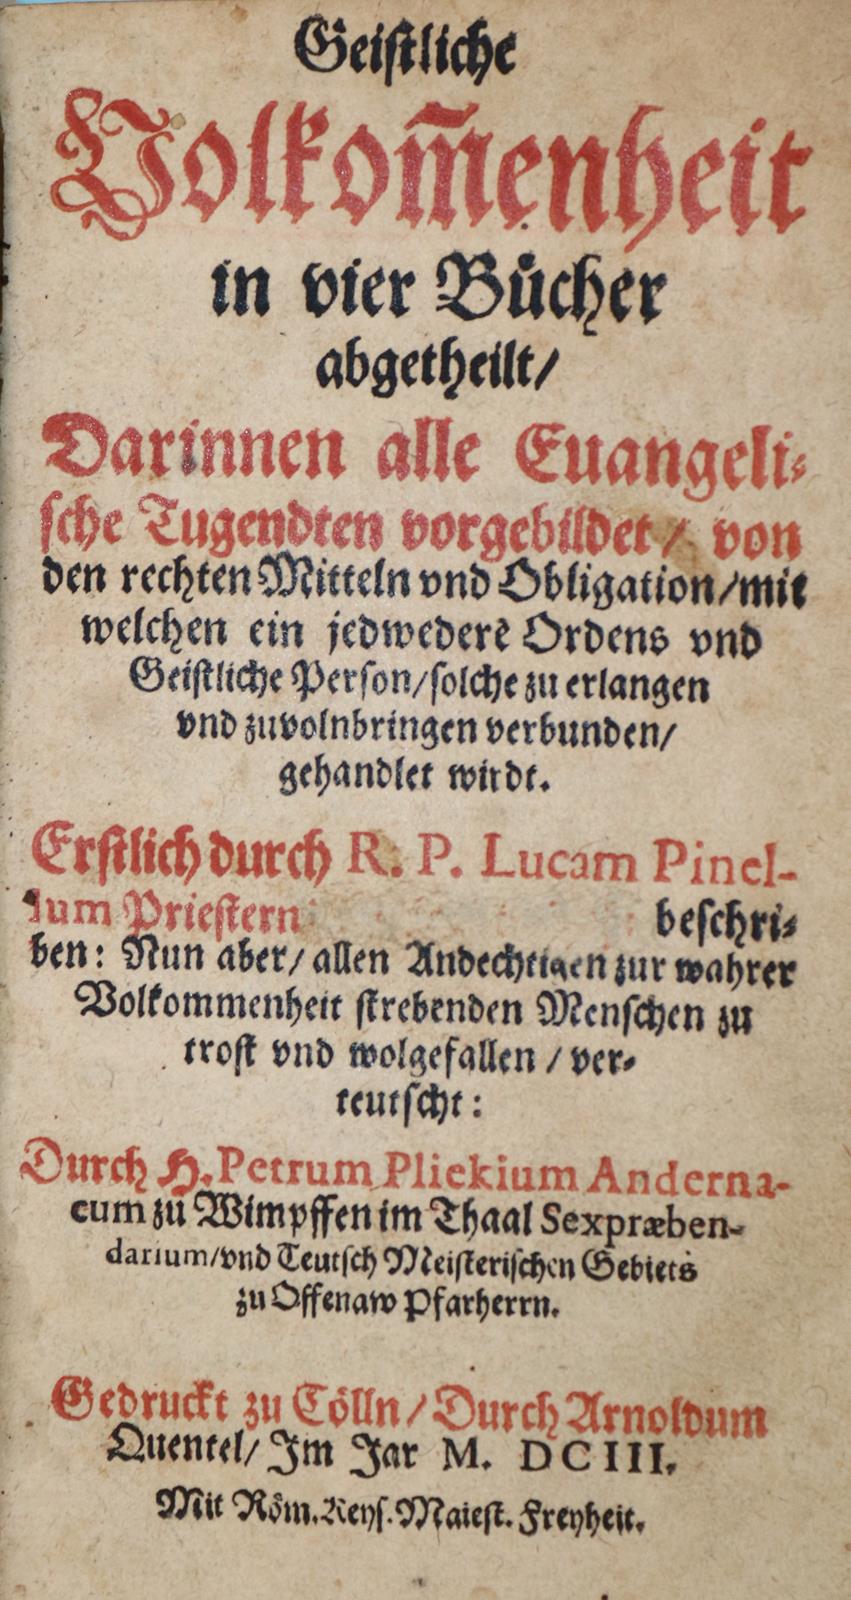 Geistliche
Volkom̃enheit
in vier Buͤcher
abgetheilt/
Darinnen alle Euangeli-
sche Tugendten vorgebildet / von
den rechten Mitteln vnd Obligation/mit
welchen ein jedwederẽ Ordens vnd
Geistliche Person/solche zu erlangen
vnd zuvolnbringen verbunden/
gehandlet wirdt.
Erstlich durch R. P. Lucam Pinel-
lum Priestern beschri-
ben: Nun aber/ allen Andechtigen zur wahrer
Volkommenheit strebenden Menschen zu
trost vnd wolgefallen / ver-
teutscht:
Durch H. Petrum Pliekium Anderna-
cum zu Wimpffen im Thaal Sexpræben-
darium/vnd Teutsch Meisterischen Gebiets
zu Offenaw Pfarherrn.
Gedruckt zu Coͤlln/ Durch Arnoldum
Quentel/ Im Jar M. DCIII.
Mit Roͤm. Keys. Maiest. Freyheit.